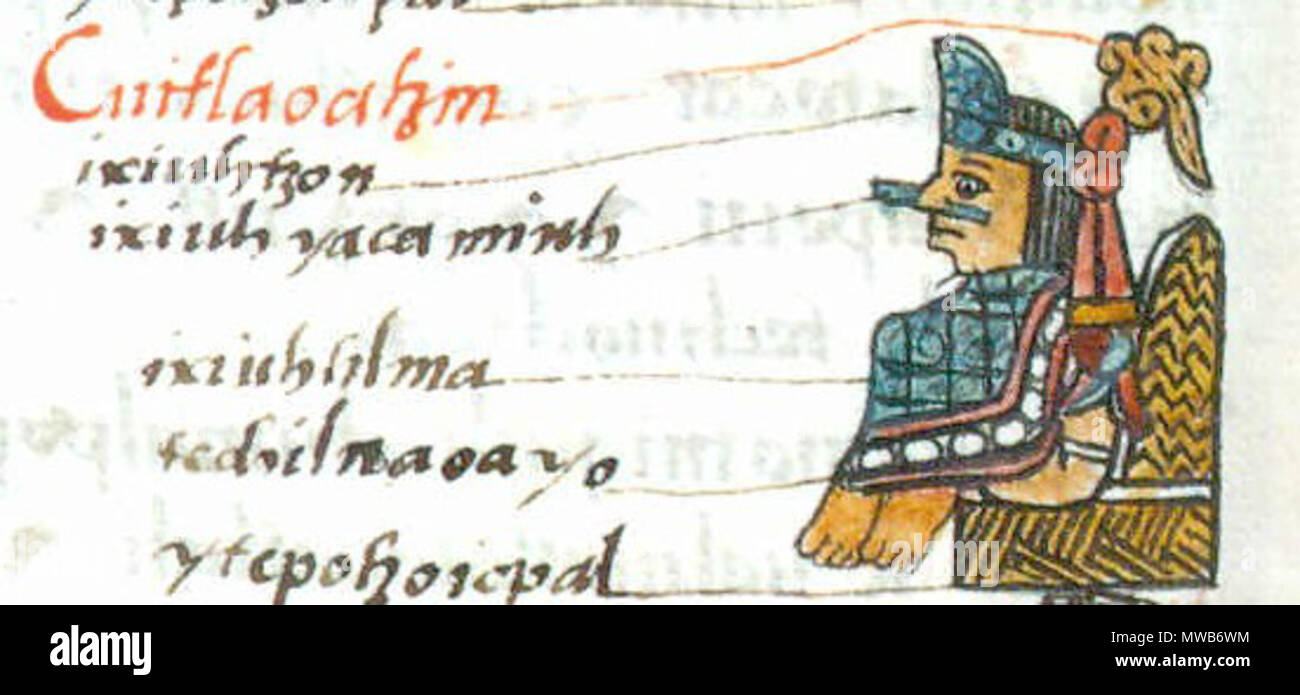 Cuitlaoatzin
ixiuhtzon
ixiuh yaca miuh
ixiuhtilma
techilnaoa yo
ytepotzoicpal
alamy
alamy
Image ID: MWB6WM
www.alamy.com